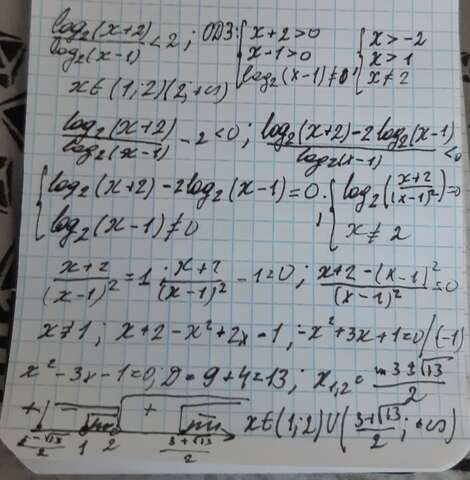 log₂(x+2)/log₂(x-1) < 2; ОДЗ: { x+2>0 { x>-2
x-1>0 x>1
log₂(x-1)≠0 x≠2
x∈(1;2)(2;+∞)
log₂(x+2)/log₂(x-1) - 2 < 0; (log₂(x+2)-2log₂(x-1))/log₂(x-1) < 0
{ log₂(x+2)-2log₂(x-1)=0; { log₂((x+2)/(x-1)²)=0
log₂(x-1)≠0 x≠2
(x+2)/(x-1)² = 1; (x+2)/(x-1)² - 1=0; (x+2-(x-1)²)/(x-1)² = 0
x≠1; x+2-x²+2x-1; -x²+3x+1=0/(-1)
x²-3x-1=0; D=9+4=13; x₁,₂=(3±√13)/2
+ - + -
(3-√13)/2 1 2 (3+√13)/2 x∈(1;2)∪((3+√13)/2; +∞)